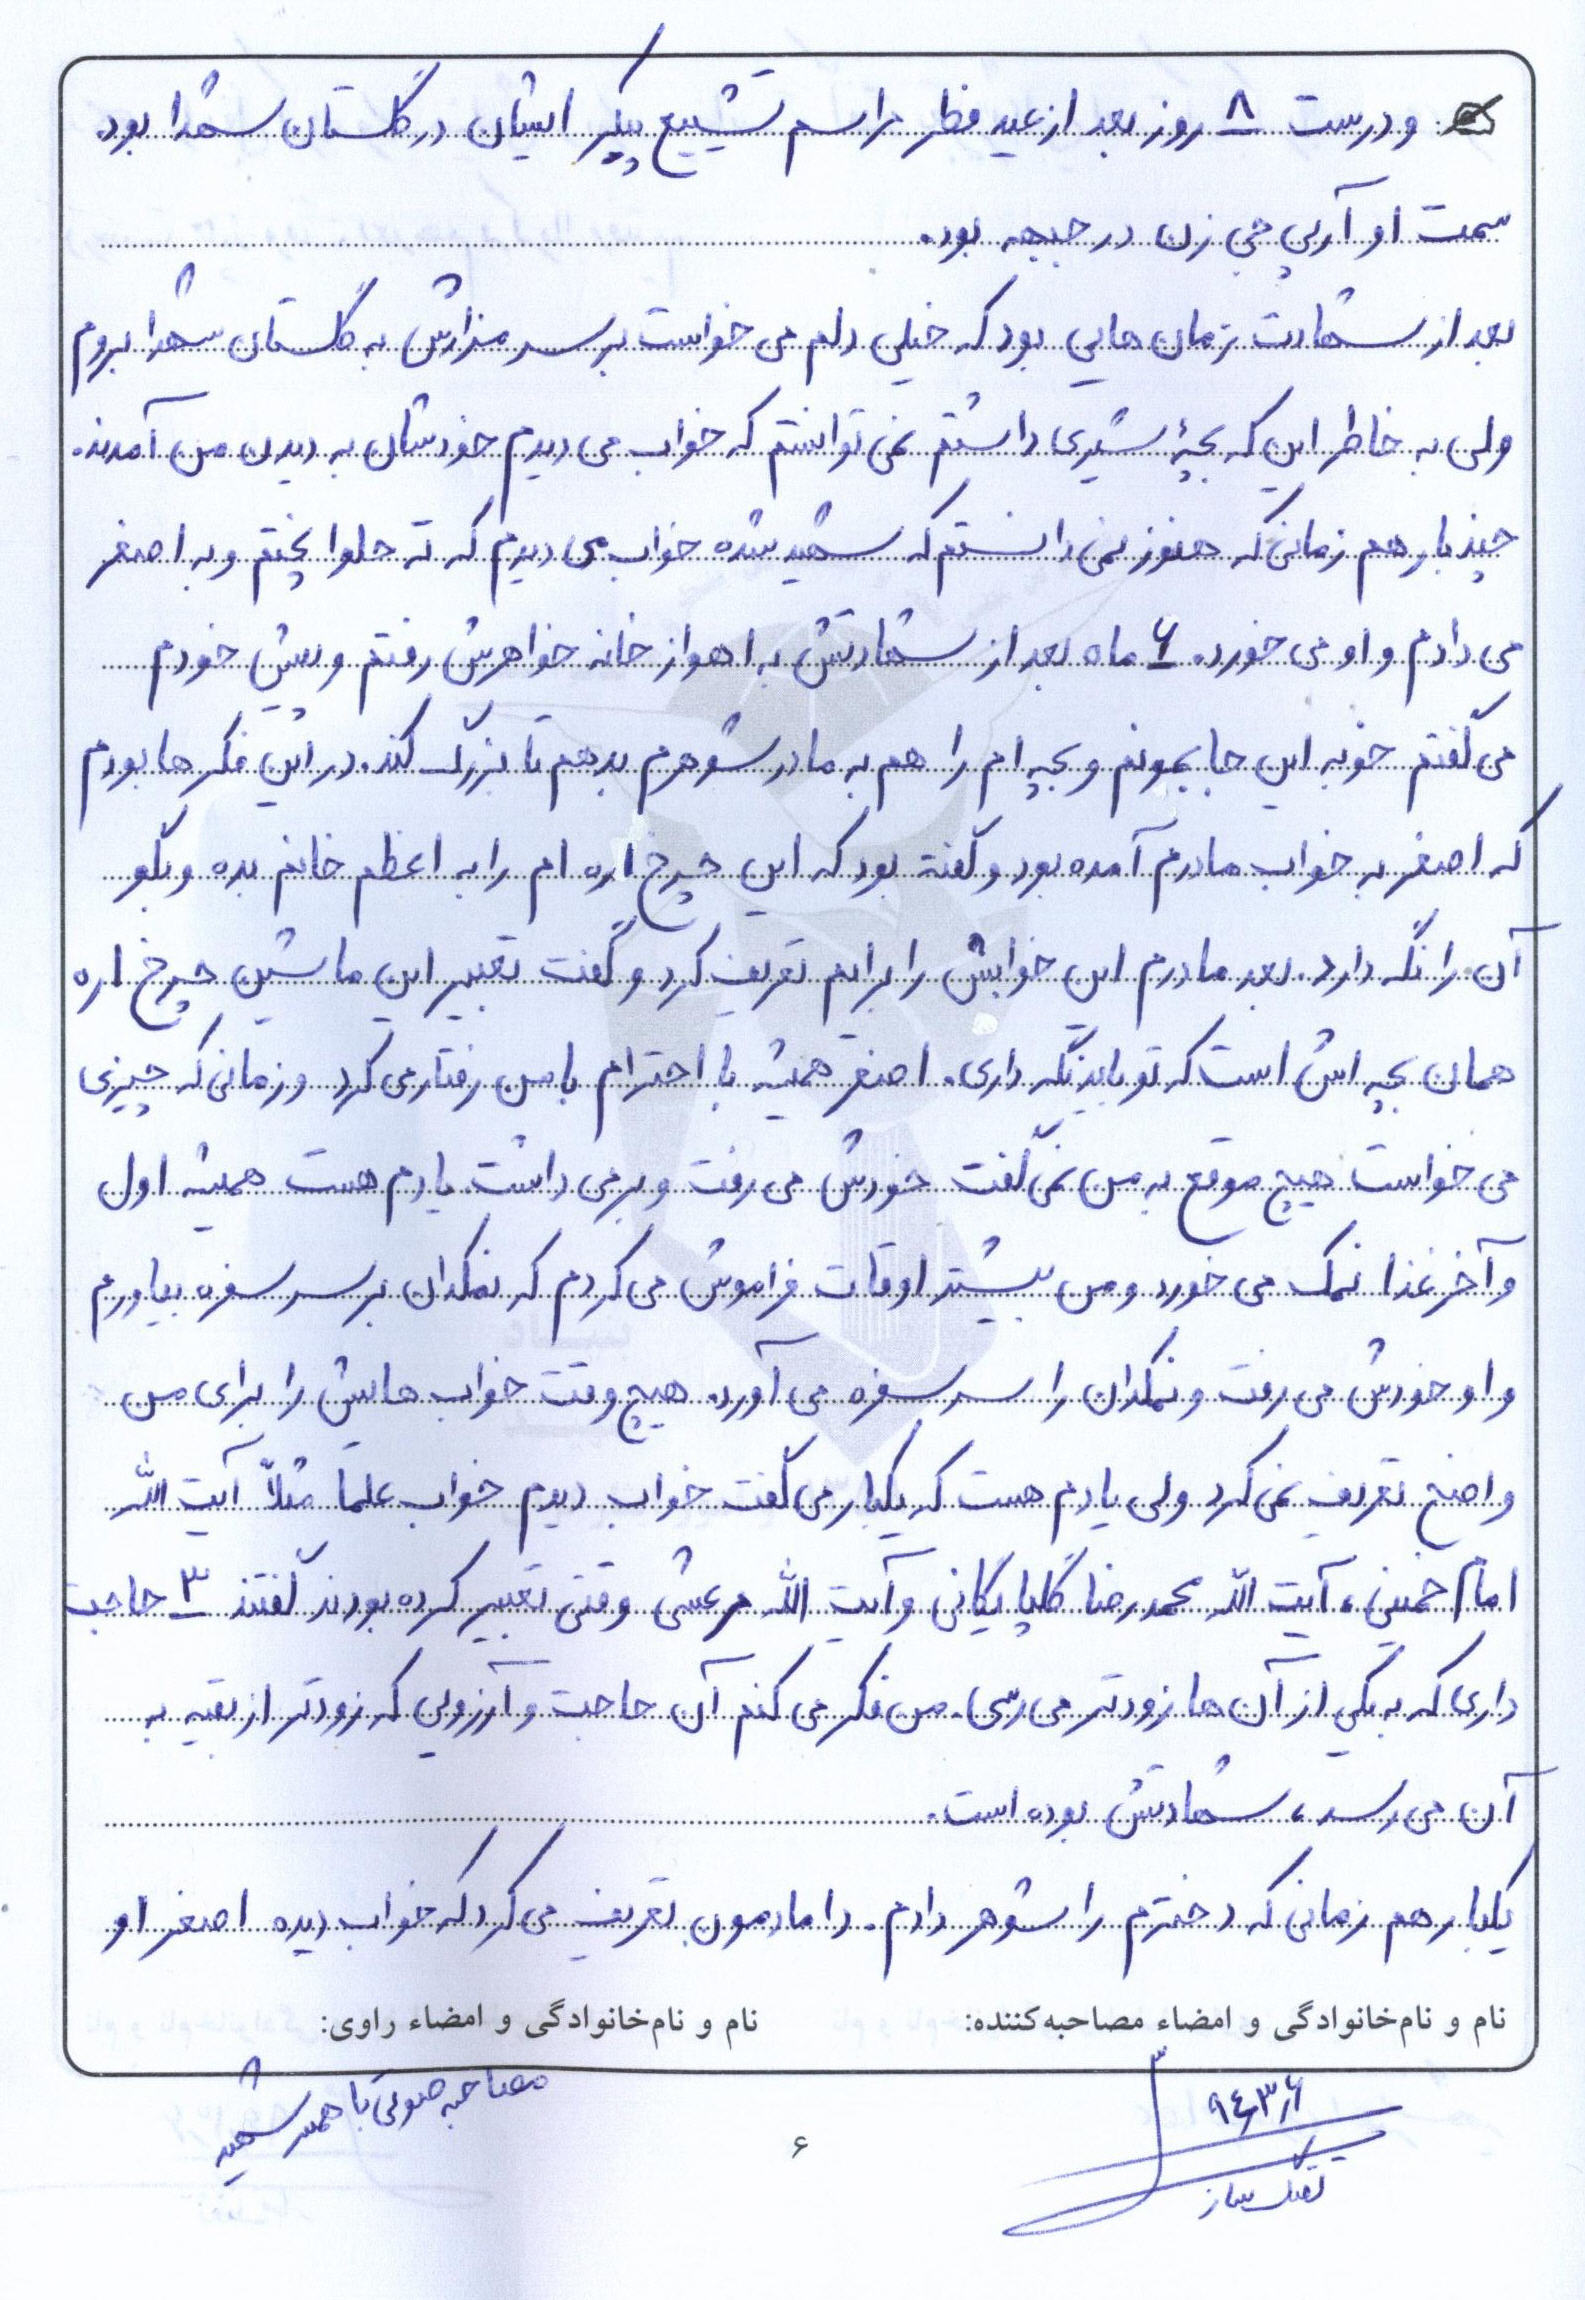 و درست ۸ روز بعد از عید فطر مراسم تشییع پیکر ایشان در گلستان شهدا بود.
سمت او آرپی جی زن در جبهه بود.
بعد از شهادت زمان هایی بود که خیلی دلم می خواست بر سر مزارش به گلستان شهدا بروم
ولی به خاطر این که بچهٔ شیری داشتم نمی توانستم که خواب می دیدم خودشان به دیدن من آمدند.
چند بار هم زمانی که هنوز نمی دانستم که شهید شده خواب می دیدم که ته حلوا پختم و به اصغر
می دادم و او می خورد. ۶ ماه بعد از شهادتش به اهواز خانه خواهرش رفتم و پیش خودم
می گفتم خوبه این جا بمونم و بچه ام را هم به مادر شوهرم بدهم تا بزرگ کند. در این فکر ها بودم
که اصغر به خواب مادرم آمده بود و گفته بود که این چرخ اره ام را به اعظم خانم بده و بگو
آن را نگه دارد. بعد مادرم این خوابش را برایم تعریف کرد و گفت تعبیر این ماشین چرخ اره
همان بچه اش است که تو باید نگه داری. اصغر همیشه با احترام با من رفتار می کرد و زمانی که چیزی
می خواست هیچ موقع به من نمی گفت خودش می رفت و بر می داشت. یادم هست همیشه اول
و آخر غذا نمک می خورد و من بیشتر اوقات فراموش می کردم که نمکدان بر سر سفره بیاورم
و او خودش می رفت و نمکدان را سر سفره می آورد. هیچ وقت خواب هایش را برای من
واضح تعریف نمی کرد ولی یادم هست که یکبار می گفت خواب دیدم خواب علما مثلاً آیت الله
امام خمینی، آیت الله محمد رضا گلپایگانی و آیت الله مرعشی وقتی تعبیر کرده بودند گفتند ۳ حاجت
داری که به یکی از آن ها زودتر می رسی. من فکر می کنم آن حاجت و آرزویی که زودتر از بقیه به
آن می رسد، شهادتش بوده است.
یکبار هم زمانی که دخترم را شوهر دادم. دامادمون تعریف می کرد که خواب دیده اصغر او
نام و نام‌خانوادگی و امضاء مصاحبه‌کننده: نام و نام‌خانوادگی و امضاء راوی:
۹۴٫۳٫۶ مصاحبه صوتی با همسر شهید
تفنگ ساز
۶